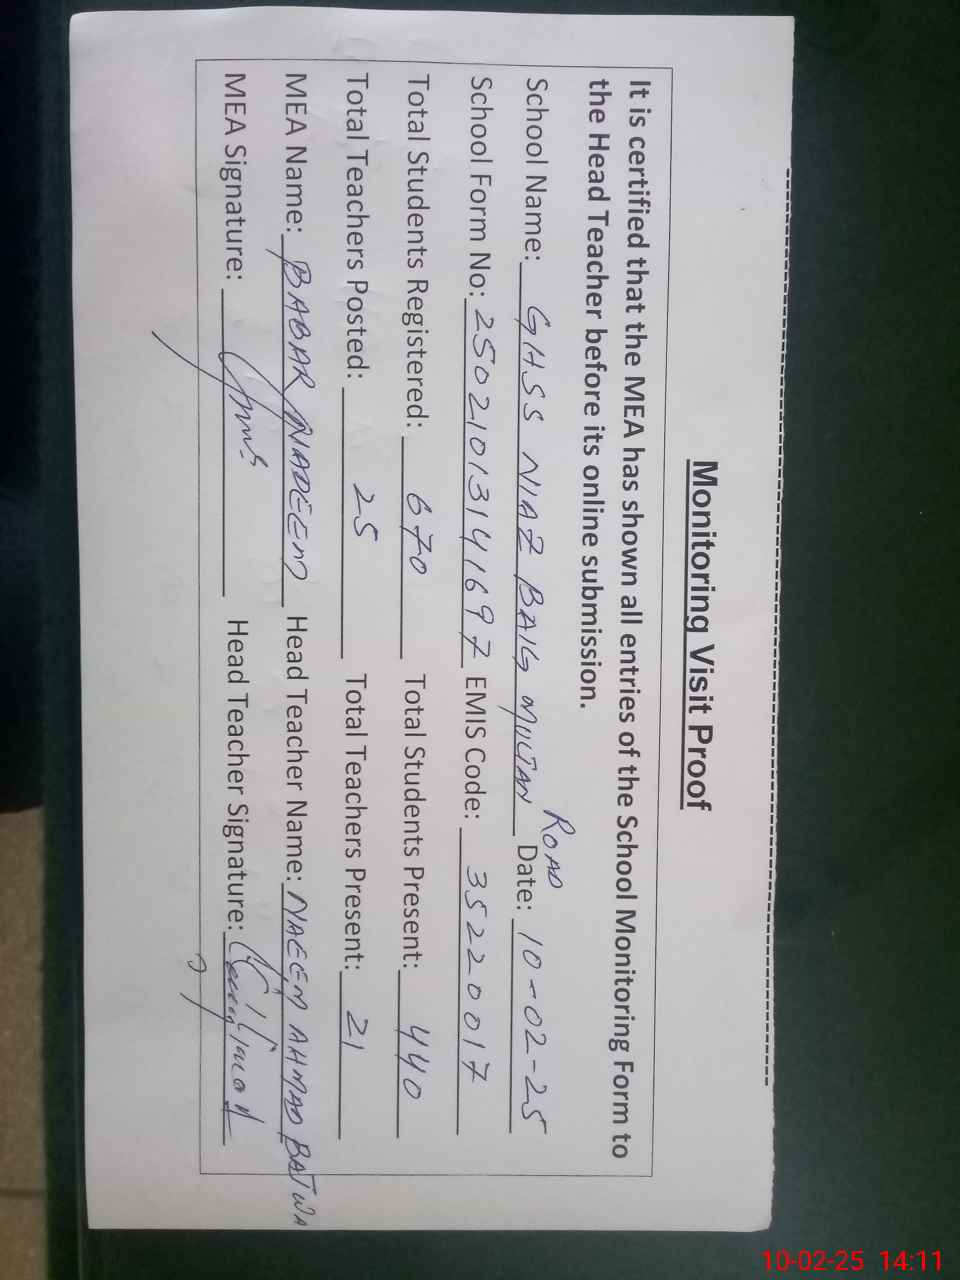 Monitoring Visit Proof
It is certified that the MEA has shown all entries of the School Monitoring Form to
the Head Teacher before its online submission.
School Name: GHSS NIAZ BAIG MULTAN ROAD Date: 10-02-25
School Form No: 25021013141697 EMIS Code: 35220017
Total Students Registered: 670 Total Students Present: 440
Total Teachers Posted: 25 Total Teachers Present: 21
MEA Name: BABAR NADEEM Head Teacher Name: NAEEM AHMAD BAJWA
MEA Signature: Head Teacher Signature:
10-02-25 14:11